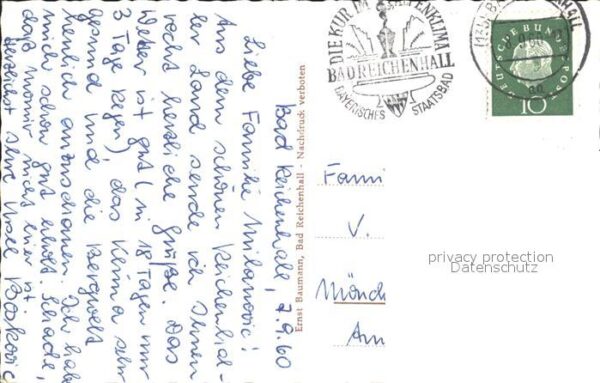 Bad Reichenhall, 7.9.60
Liebe Familie Milanovic!
Aus dem schönen Reichenhal-
ler Land sende ich Ihnen
recht herzliche Grüße. Das
Wetter ist gut (in 18 Tagen nur
3 Tage Regen) das Klima sehr
gesund und die Bergwelt
herrlich anzuschauen. Ich habe
mich schon gut erholt. Schade,
daß Momir nicht hier ist.
Herzlichst Ihre
Ernst Baumann, Bad Reichenhall - Nachdruck verboten
DIE KUR IM GARTENKLIMA
BAD REICHENHALL
BAYERISCHES STAATSBAD
DEUTSCHE BUNDESPOST
10
Fami
V.
Mönch
Am
privacy protection
Datenschutz